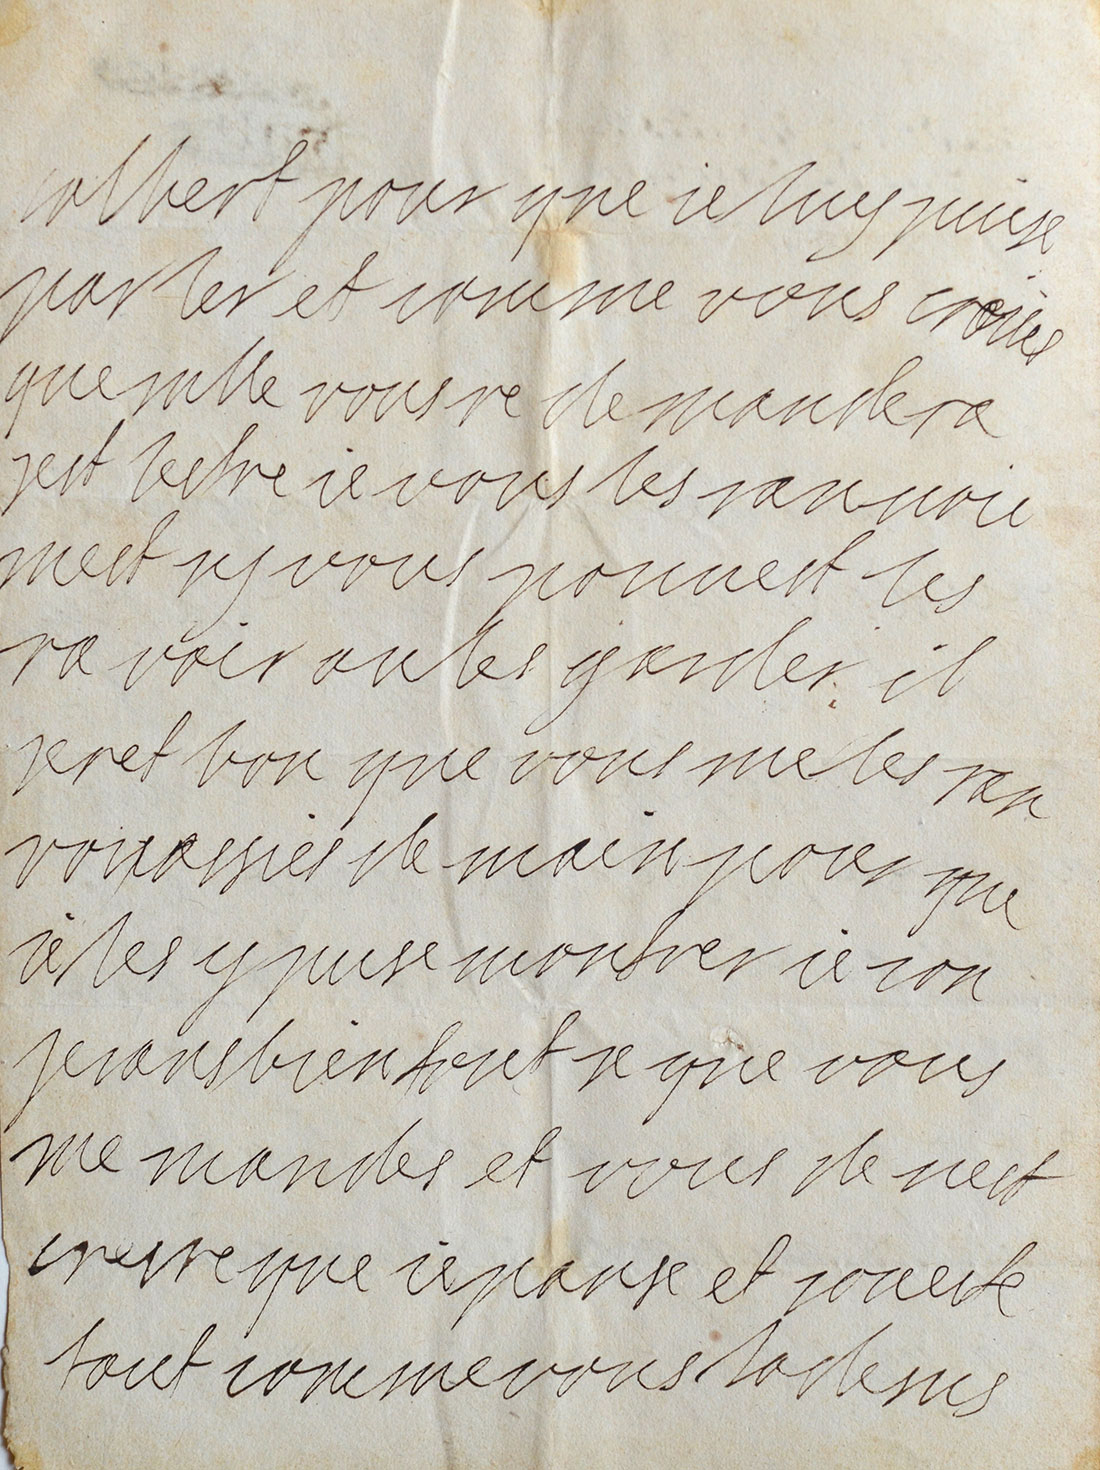 colbert pour que ie luy puise
parler et comme vous croies
quemlle vousre demandera
sest lestre ie vous les ranuoie
mest sy vous pouuest les
ravoir ou les garder il
seret bon que vous me les ran
voiassies demain pour que
ie les y puise montrer ie con
serans bien tout se que vous
me mandes et vous deuest
crerre que ie panse et soueste
tout comme vous la desus